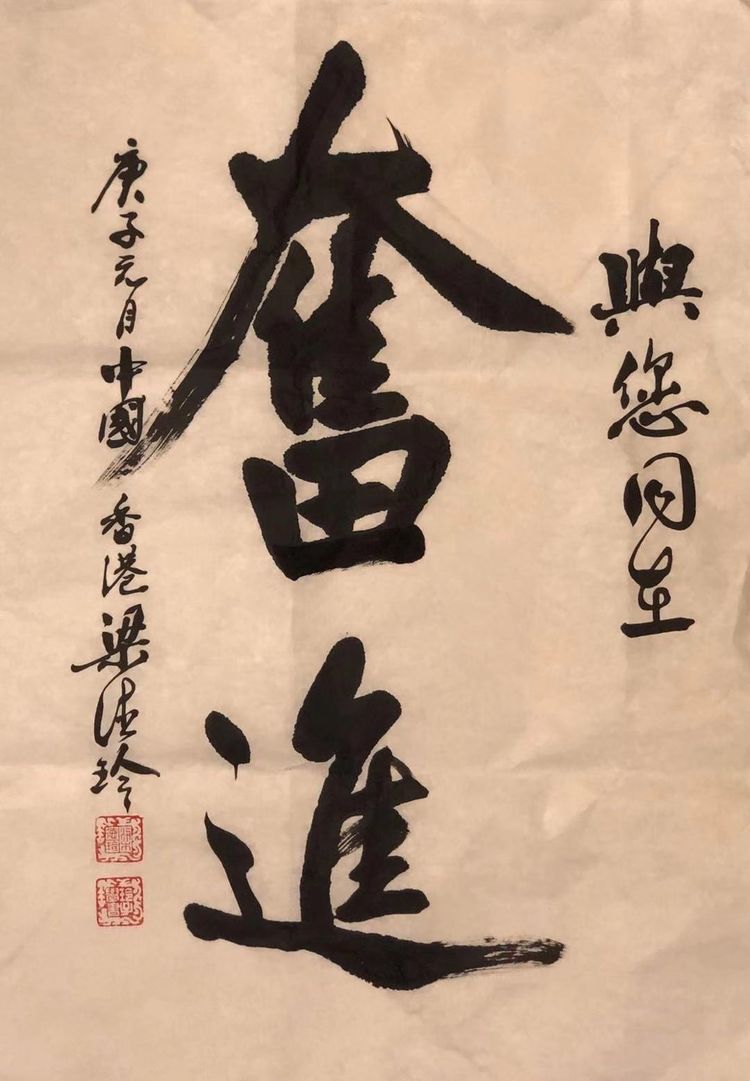 與您同在
奮進
庚子元月中國香港梁法玲